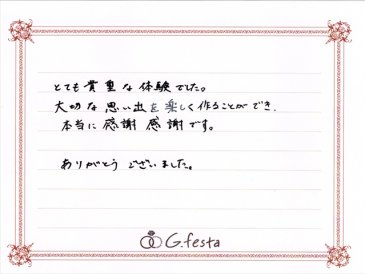 とても貴重な体験でした。
大切な思い出を楽しく作ることができ、
本当に感謝感謝です。
ありがとうございました。
G.festa